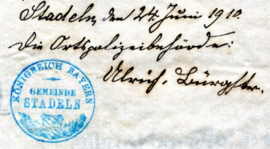 Stadeln, den 24. Juni 1910.
Die Ortspolizeibehörde:
Ulrich, Bürgstr.
KÖNIGREICH BAYERN
GEMEINDE
STADELN